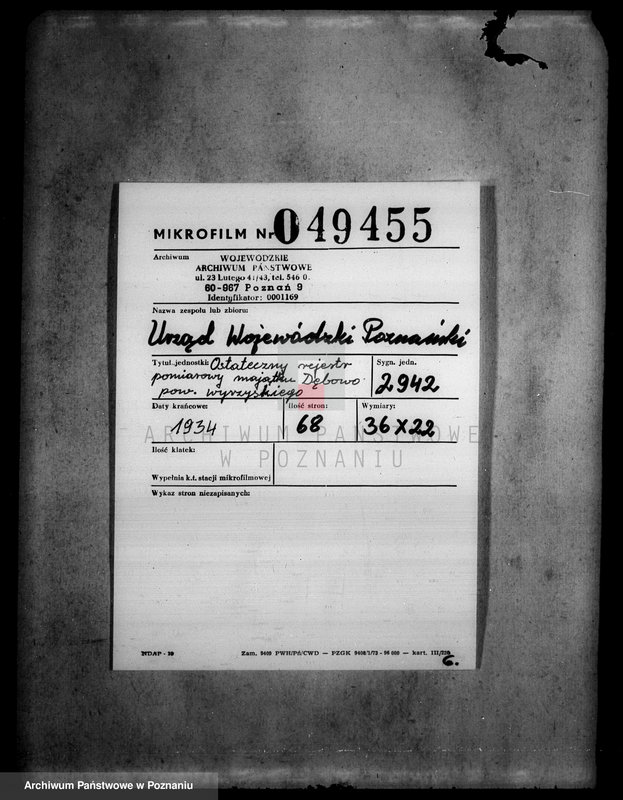 MIKROFILM Nr 049455
Archiwum
WOJEWÓDZKIE
ARCHIWUM PAŃSTWOWE
ul. 23 Lutego 41/43, tel. 546 0.
60-967 Poznań 9
Identyfikator: 0001169
Nazwa zespołu lub zbioru:
Urząd Wojewódzki Poznański
Tytuł jednostki: Ostateczny rejestr
pomiarowy majątku Dębowo
pow. wyrzyskiego
Sygn. jedn.
2942
Daty krańcowe:
1934
Ilość stron:
68
Wymiary:
36 X 22
ARCHIWUM PAŃSTWOWE
W POZNANIU
Ilość klatek:
Wypełnia k.t. stacji mikrofilmowej
Wykaz stron niezapisanych:
NDAP - 39
Zam. 9409 PWH/Pź/CWD — PZGK 9408/1/73 - 96 000 — kart. III/220
6.
Archiwum Państwowe w Poznaniu